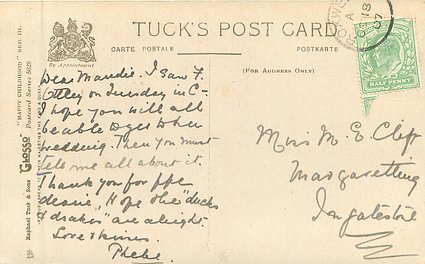 TUCK'S POST CARD
CARTE POSTALE
POSTKARTE
By Appointment
(FOR ADDRESS ONLY)
"HAPPY CHILDHOOD" SER. III.
Raphael Tuck & Sons' "Glosso" Postcard Series 8028
HALF PENNY
Dear Maudie. I saw F.
on Tuesday in C-
I hope you will all
be able to go to her
wedding. Then you must
tell me all about it.
Thank you for ppc
dearie, Hope the "ducks
& drakes" are alright.
Love & kisses.
Phebe.
Miss M. E. Clift
Margaretting
Ingatestone